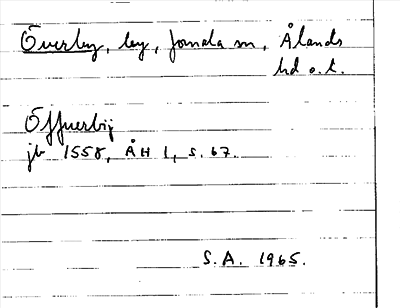 Överby, by, Jomala sn, Ålands
hd o. t.
Öffuerbÿ
jb 1558, ÅH 1, s. 67.
S.A. 1965.